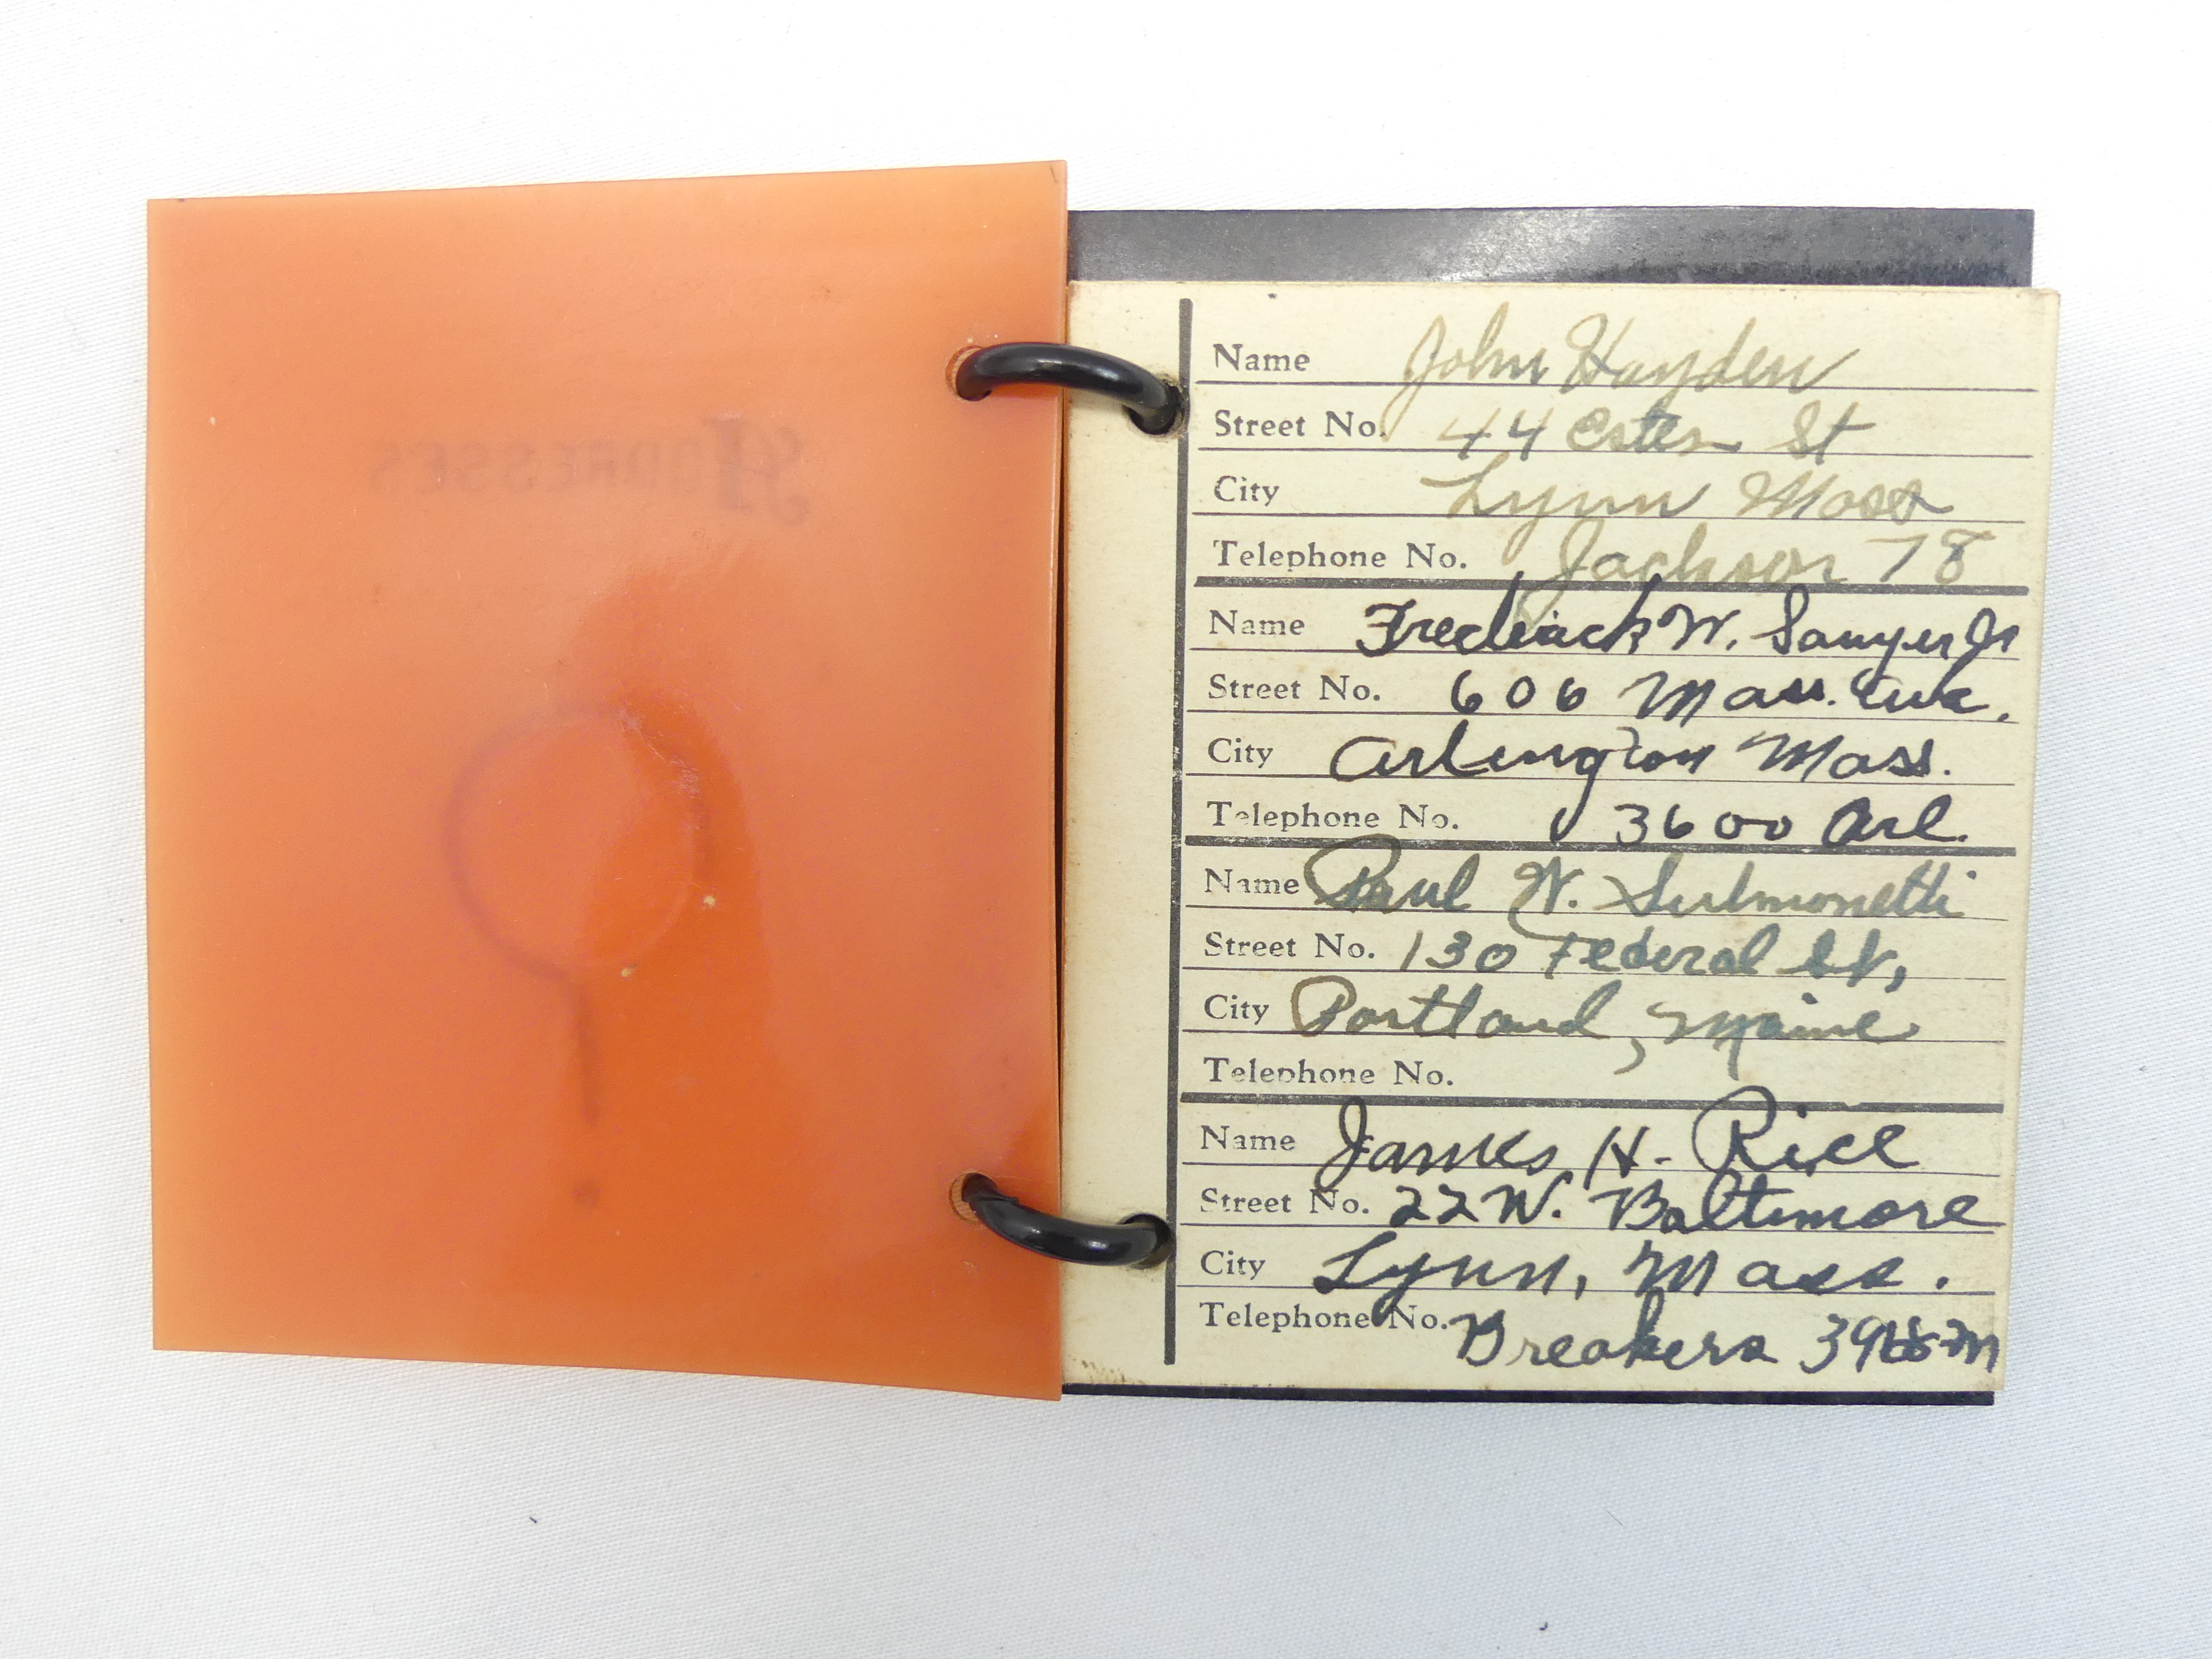 ADDRESSES
Name John Hayden
Street No. 44 Estes St
City Lynn Mass
Telephone No. Jackson 78
Name Frederick W. Sawyer Jr
Street No. 606 Mass. Ave.
City Arlington Mass.
Telephone No. 3600 Arl.
Name Paul N. Sulmonetti
Street No. 130 Federal St,
City Portland, Maine
Telephone No.
Name James H. Rice
Street No. 22 W. Baltimore
City Lynn, Mass.
Telephone No. Breakers